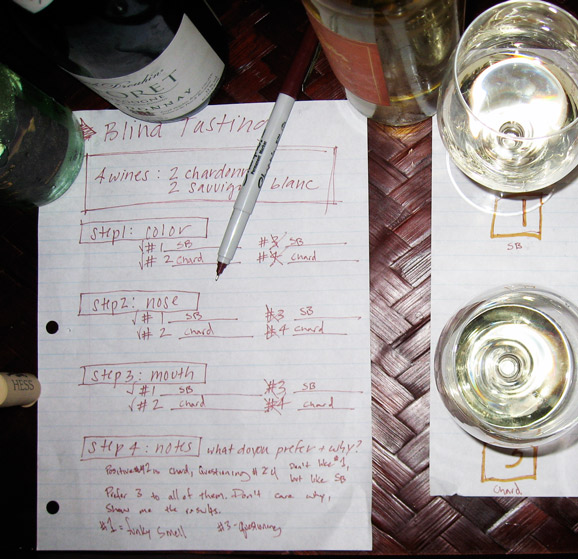 DRET
NNAY
Blind Tasting
4 wines: 2 chardonn
2 sauvig blanc
Step 1: color
√#1 SB #3 SB
√#2 Chard #4 Chard
Step 2: nose
√#1 SB #3 SB
√#2 Chard #4 Chard
Step 3: mouth
√#1 SB #3 SB
√#2 Chard #4 Chard
Step 4: notes what do you prefer + why?
chard, questioning #2 4 Don't like #1,
but like SB
Prefer 3 to all of them. Don't care why,
show me the results.
#1 = funky smell #3 - questioning
HESS
SB
3
Chard